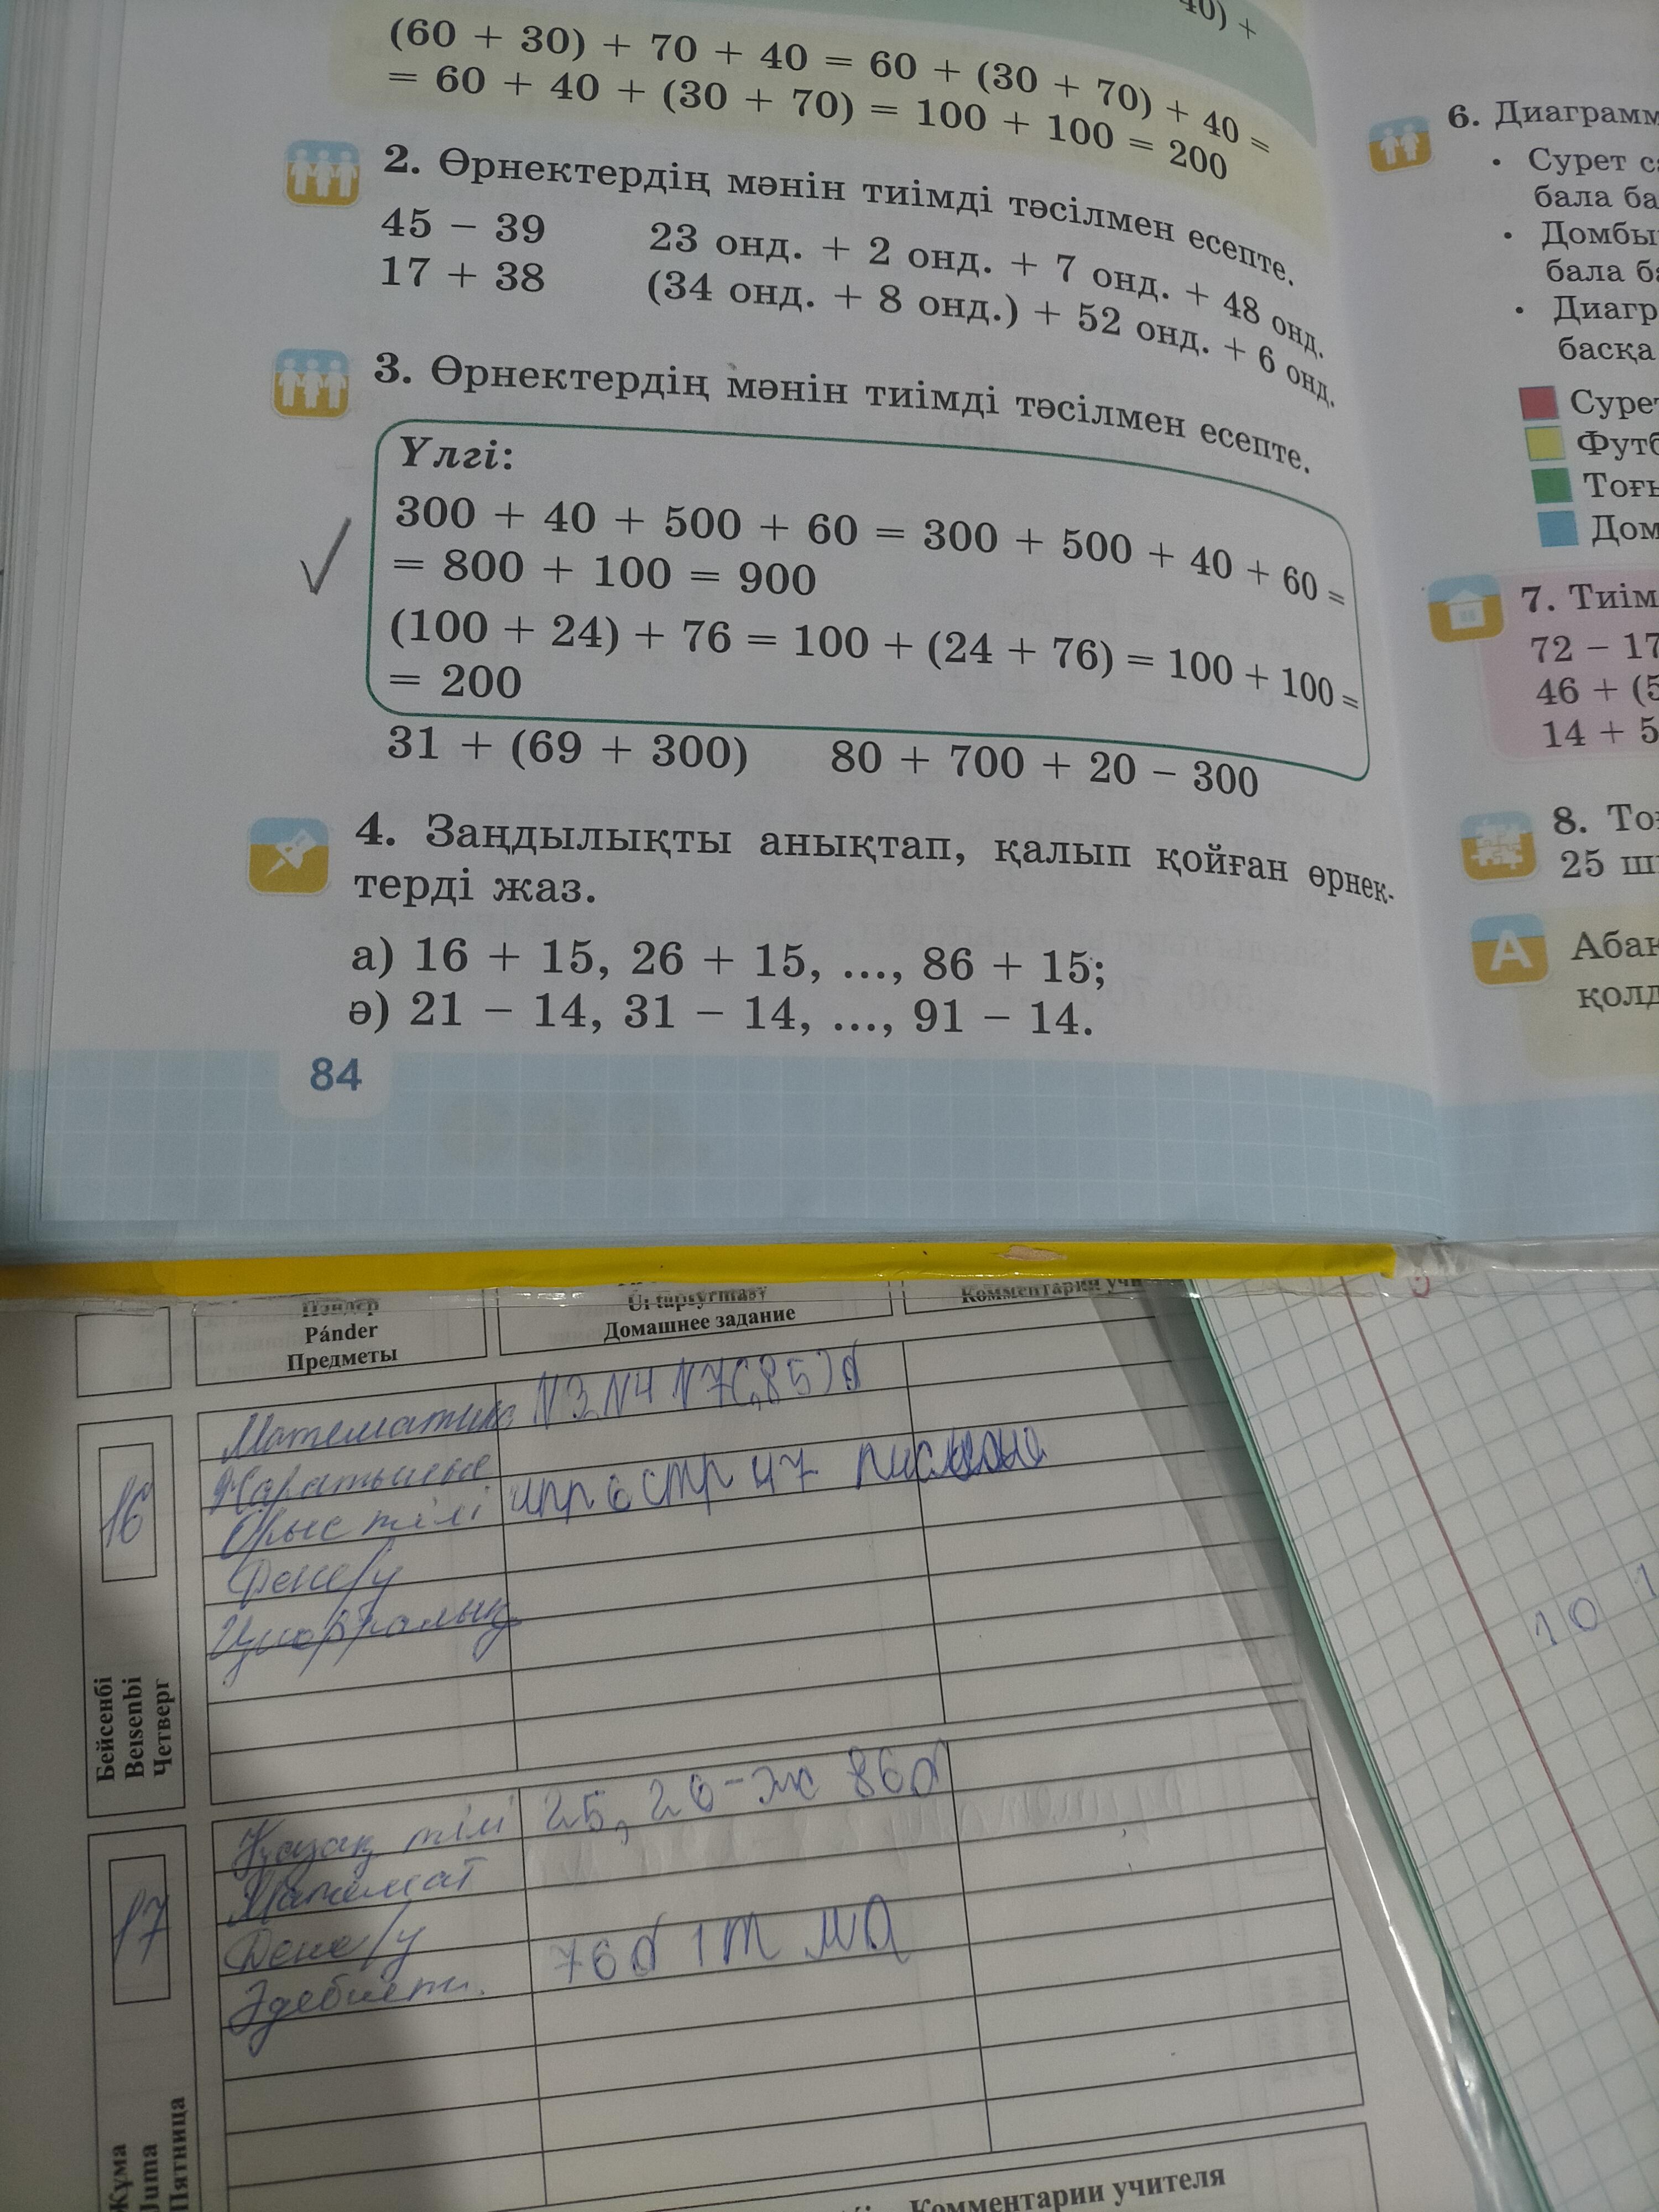 40) +
(60 + 30) + 70 + 40 = 60 + (30 + 70) + 40 =
= 60 + 40 + (30 + 70) = 100 + 100 = 200
2. Өрнектердің мәнін тиімді тәсілмен есепте.
45 − 39 23 онд. + 2 онд. + 7 онд. + 48 онд.
17 + 38 (34 онд. + 8 онд.) + 52 онд. + 6 онд.
3. Өрнектердің мәнін тиімді тәсілмен есепте.
Үлгі:
300 + 40 + 500 + 60 = 300 + 500 + 40 + 60 =
= 800 + 100 = 900
(100 + 24) + 76 = 100 + (24 + 76) = 100 + 100 =
= 200
31 + (69 + 300) 80 + 700 + 20 − 300
4. Заңдылықты анықтап, қалып қойған өрнек-
терді жаз.
а) 16 + 15, 26 + 15, ..., 86 + 15;
ә) 21 − 14, 31 − 14, ..., 91 − 14.
84
6. Диаграмм
• Сурет с
бала ба
• Домбы
бала б
• Диагр
басқа
Сурет
Футб
Тоғы
Дом
7. Тиім
72 − 17
46 + (5
14 + 5
8. То
25 ш
А Абак
қолд
Пәндер
Pánder
Предметы
Úı tapsyrmasy
Домашнее задание
Комментарии учи
16
Бейсенбі
Beısenbi
Четверг
Математика N3 N4 N7(85)б
Жаратылыс
Орыс тілі упр 6 стр 47 писмено
Дене/у
Цифрлық
17
Жұма
Juma
Пятница
Қазақ тілі 25, 26-жж 86б
Математ
Дене/у
Әдебиетт. 76б 1т МА
Комментарии учителя
10 1